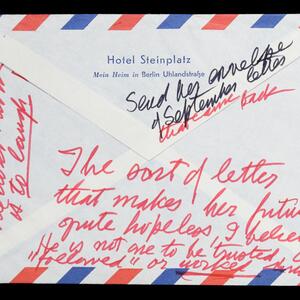 Hotel Steinplatz
Mein Heim in Berlin Uhlandstraße
Send her envelope
of September letter
that came back
The sort of letter
that makes her futur
quite hopeless, I believ
"He is not one to be trusted,
"followed" or worked
is to laugh